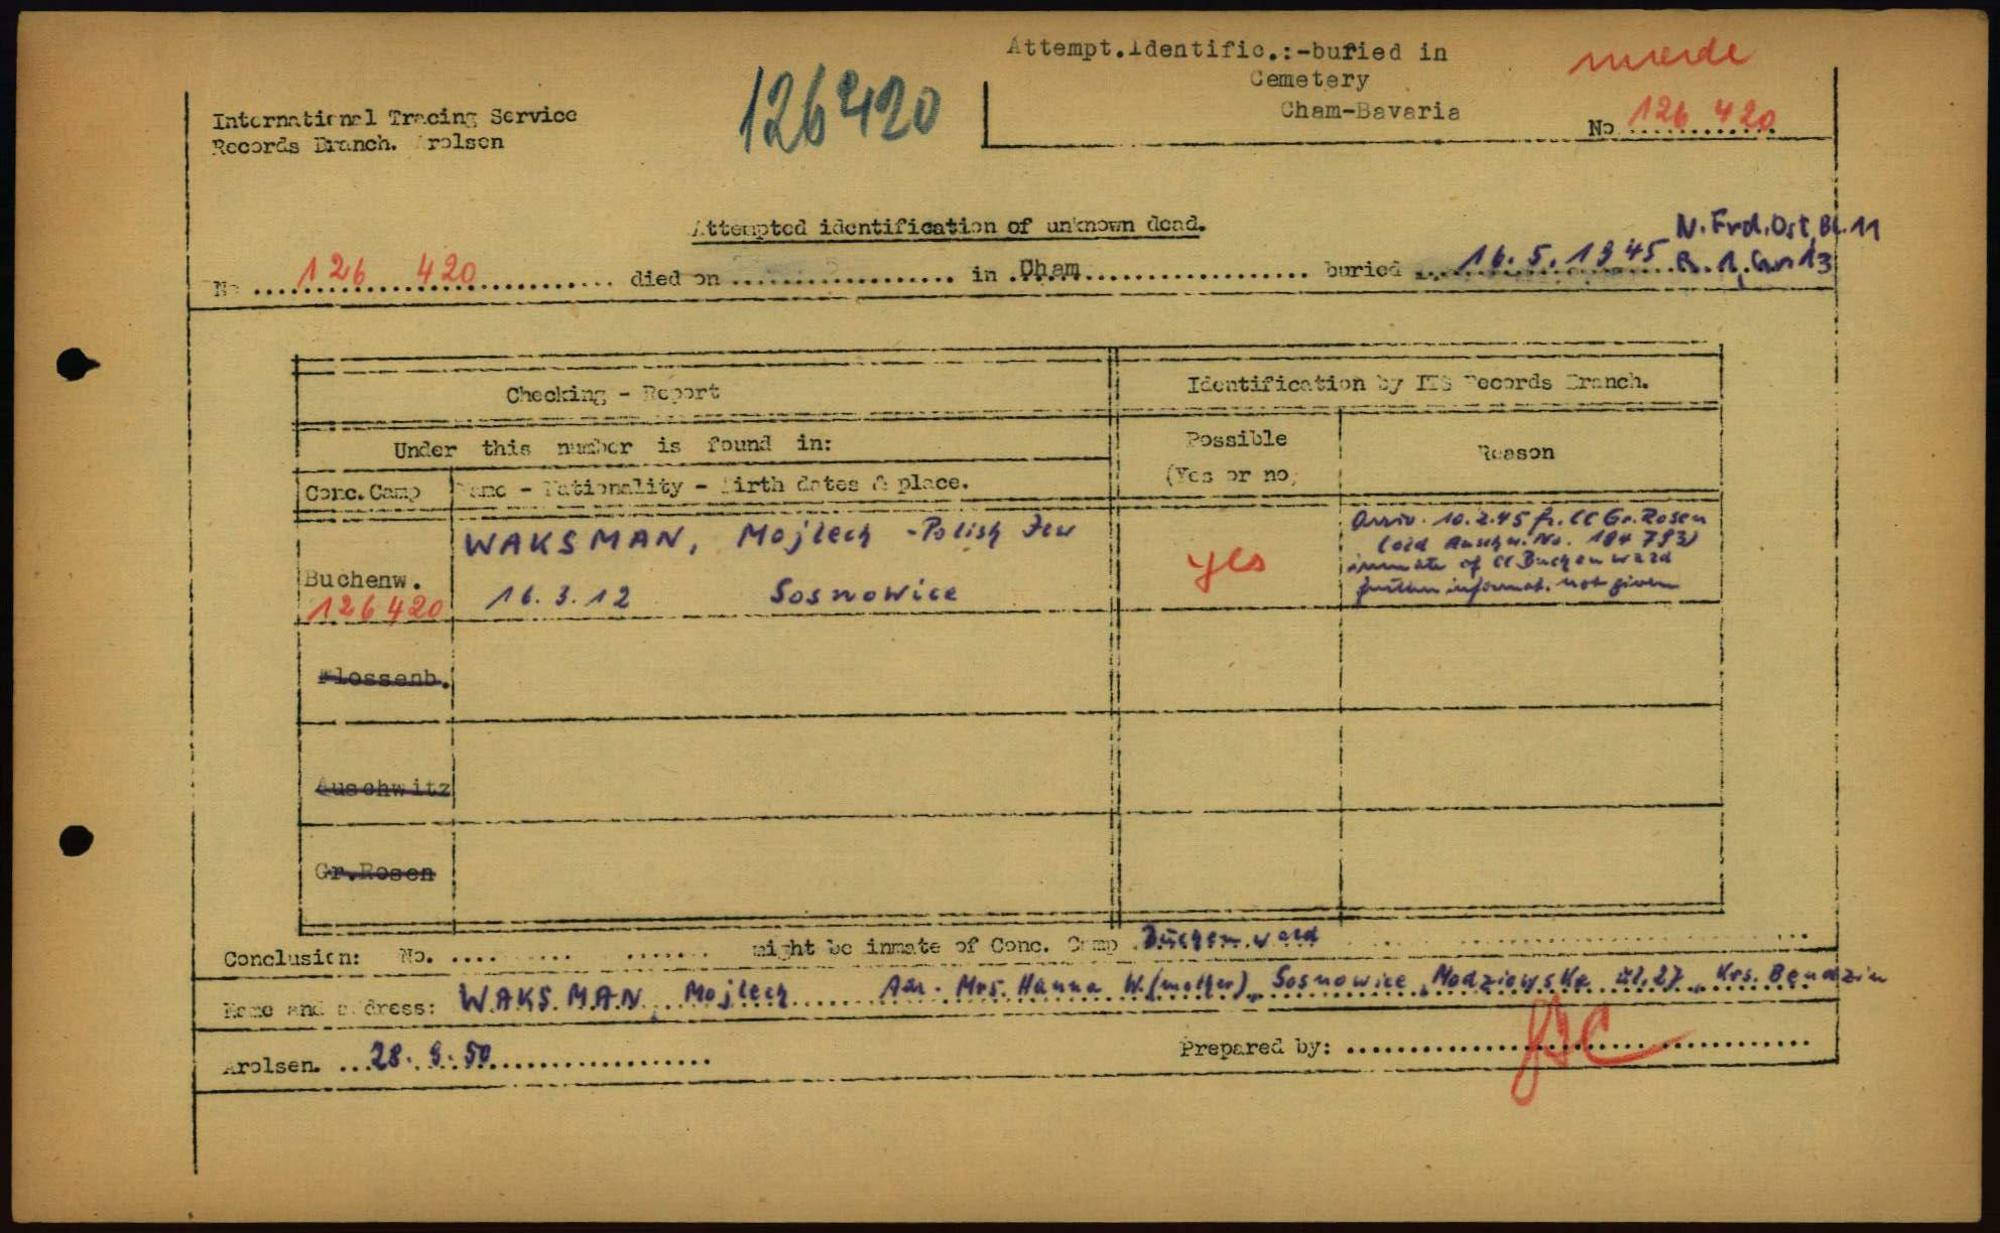 Attempt.Identific.:-buried in
Cemetery
Cham-Bavaria
No 126 420
126420
International Tracing Service
Records Branch. Arolsen
Attempted identification of unknown dead.
N. Frd. Ost, Bl. 11
No 126 420 died on in Cham buried 16.5.1945 R. 1, Gr. 13
Checking - Report
Identification by ITS Records Branch.
Under this number is found in:
Possible
(Yes or no)
Reason
Conc. Camp
Name - Nationality - Birth dates & place.
Buchenw.
126420
WAKSMAN, Mojlech - Polish Jew
16.3.12 Sosnowice
yes
Arriv. 10.2.45 fr. CC Gr. Rosen
(old Auschw. No. 184 793)
inmate of CC Buchenwald
further informat. not given
Flossenb.
Auschwitz
Gr.Rosen
Conclusion: No. might be inmate of Conc. Camp Buchenwald
Name and address: WAKSMAN Mojlech Adr. Mrs. Hanna W. (mother), Sosnowice, ul. 27, Krs. Bendzin
Arolsen. 28.9.50
Prepared by: